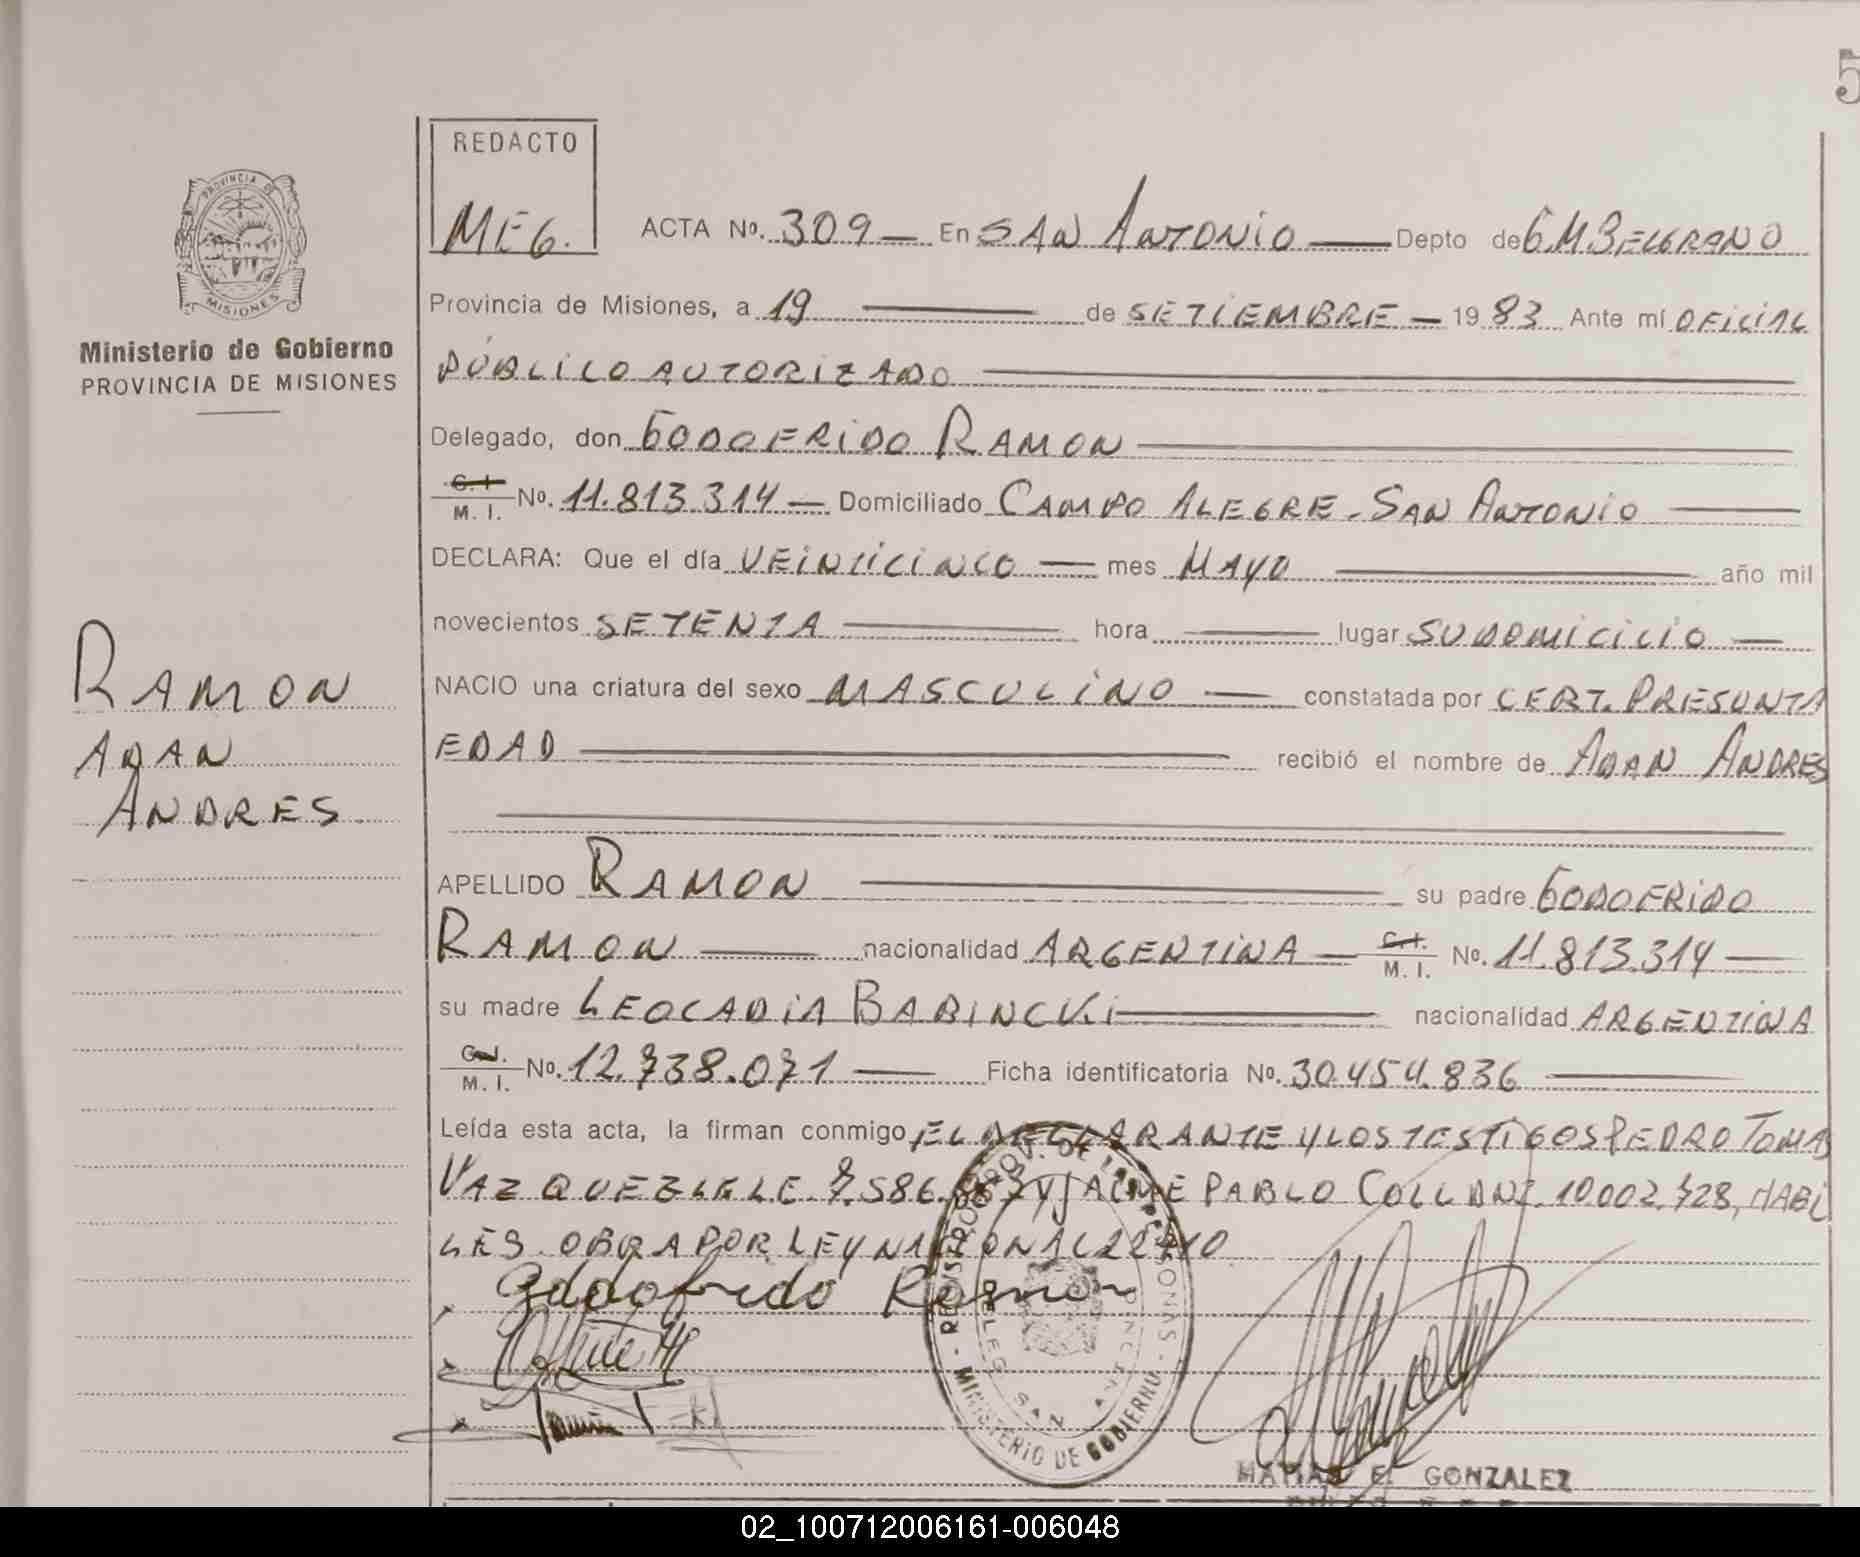 5
REDACTO
MEG.
ACTA No. 309 — En SAN ANTONIO — Depto de G.M. BELGRANO
PROVINCIA DE
MISIONES
Ministerio de Gobierno
PROVINCIA DE MISIONES
Provincia de Misiones, a 19 — de SETIEMBRE — 1983 Ante mí OFICIAL
PÚBLICO AUTORIZADO
Delegado, don GODOFRIDO RAMON
C. I.
M. I. No. 11.813.314 — Domiciliado CAMPO ALEGRE - SAN ANTONIO
DECLARA: Que el día VEINTICINCO — mes MAYO — año mil
novecientos SETENTA — hora — lugar SU DOMICILIO —
RAMON
ADAN
ANDRES
NACIO una criatura del sexo MASCULINO — constatada por CERT. PRESUNTA
EDAD — recibió el nombre de ADAN ANDRES
APELLIDO RAMON — su padre GODOFRIDO
RAMON — nacionalidad ARGENTINA — C. I. M. I. No. 11.813.314 —
su madre LEOCADIA BABINCKI — nacionalidad ARGENTINA
C. I.
M. I. No. 12.738.071 — Ficha identificatoria No. 30.454.836 —
Leída esta acta, la firman conmigo EL DECLARANTE Y LOS TESTIGOS PEDRO TOMAS
VAZQUEZ L.E. 7.586. Y JAIME PABLO COLL DNI. 10.002.728, HABI
LES. OBRA POR LEY NACIONAL 22410
Godofrido Ramon
PROV. DE LAS PERSONAS
MINISTERIO DE GOBIERNO
SAN ANTONIO
MATIAS E. GONZALEZ
02_100712006161-006048